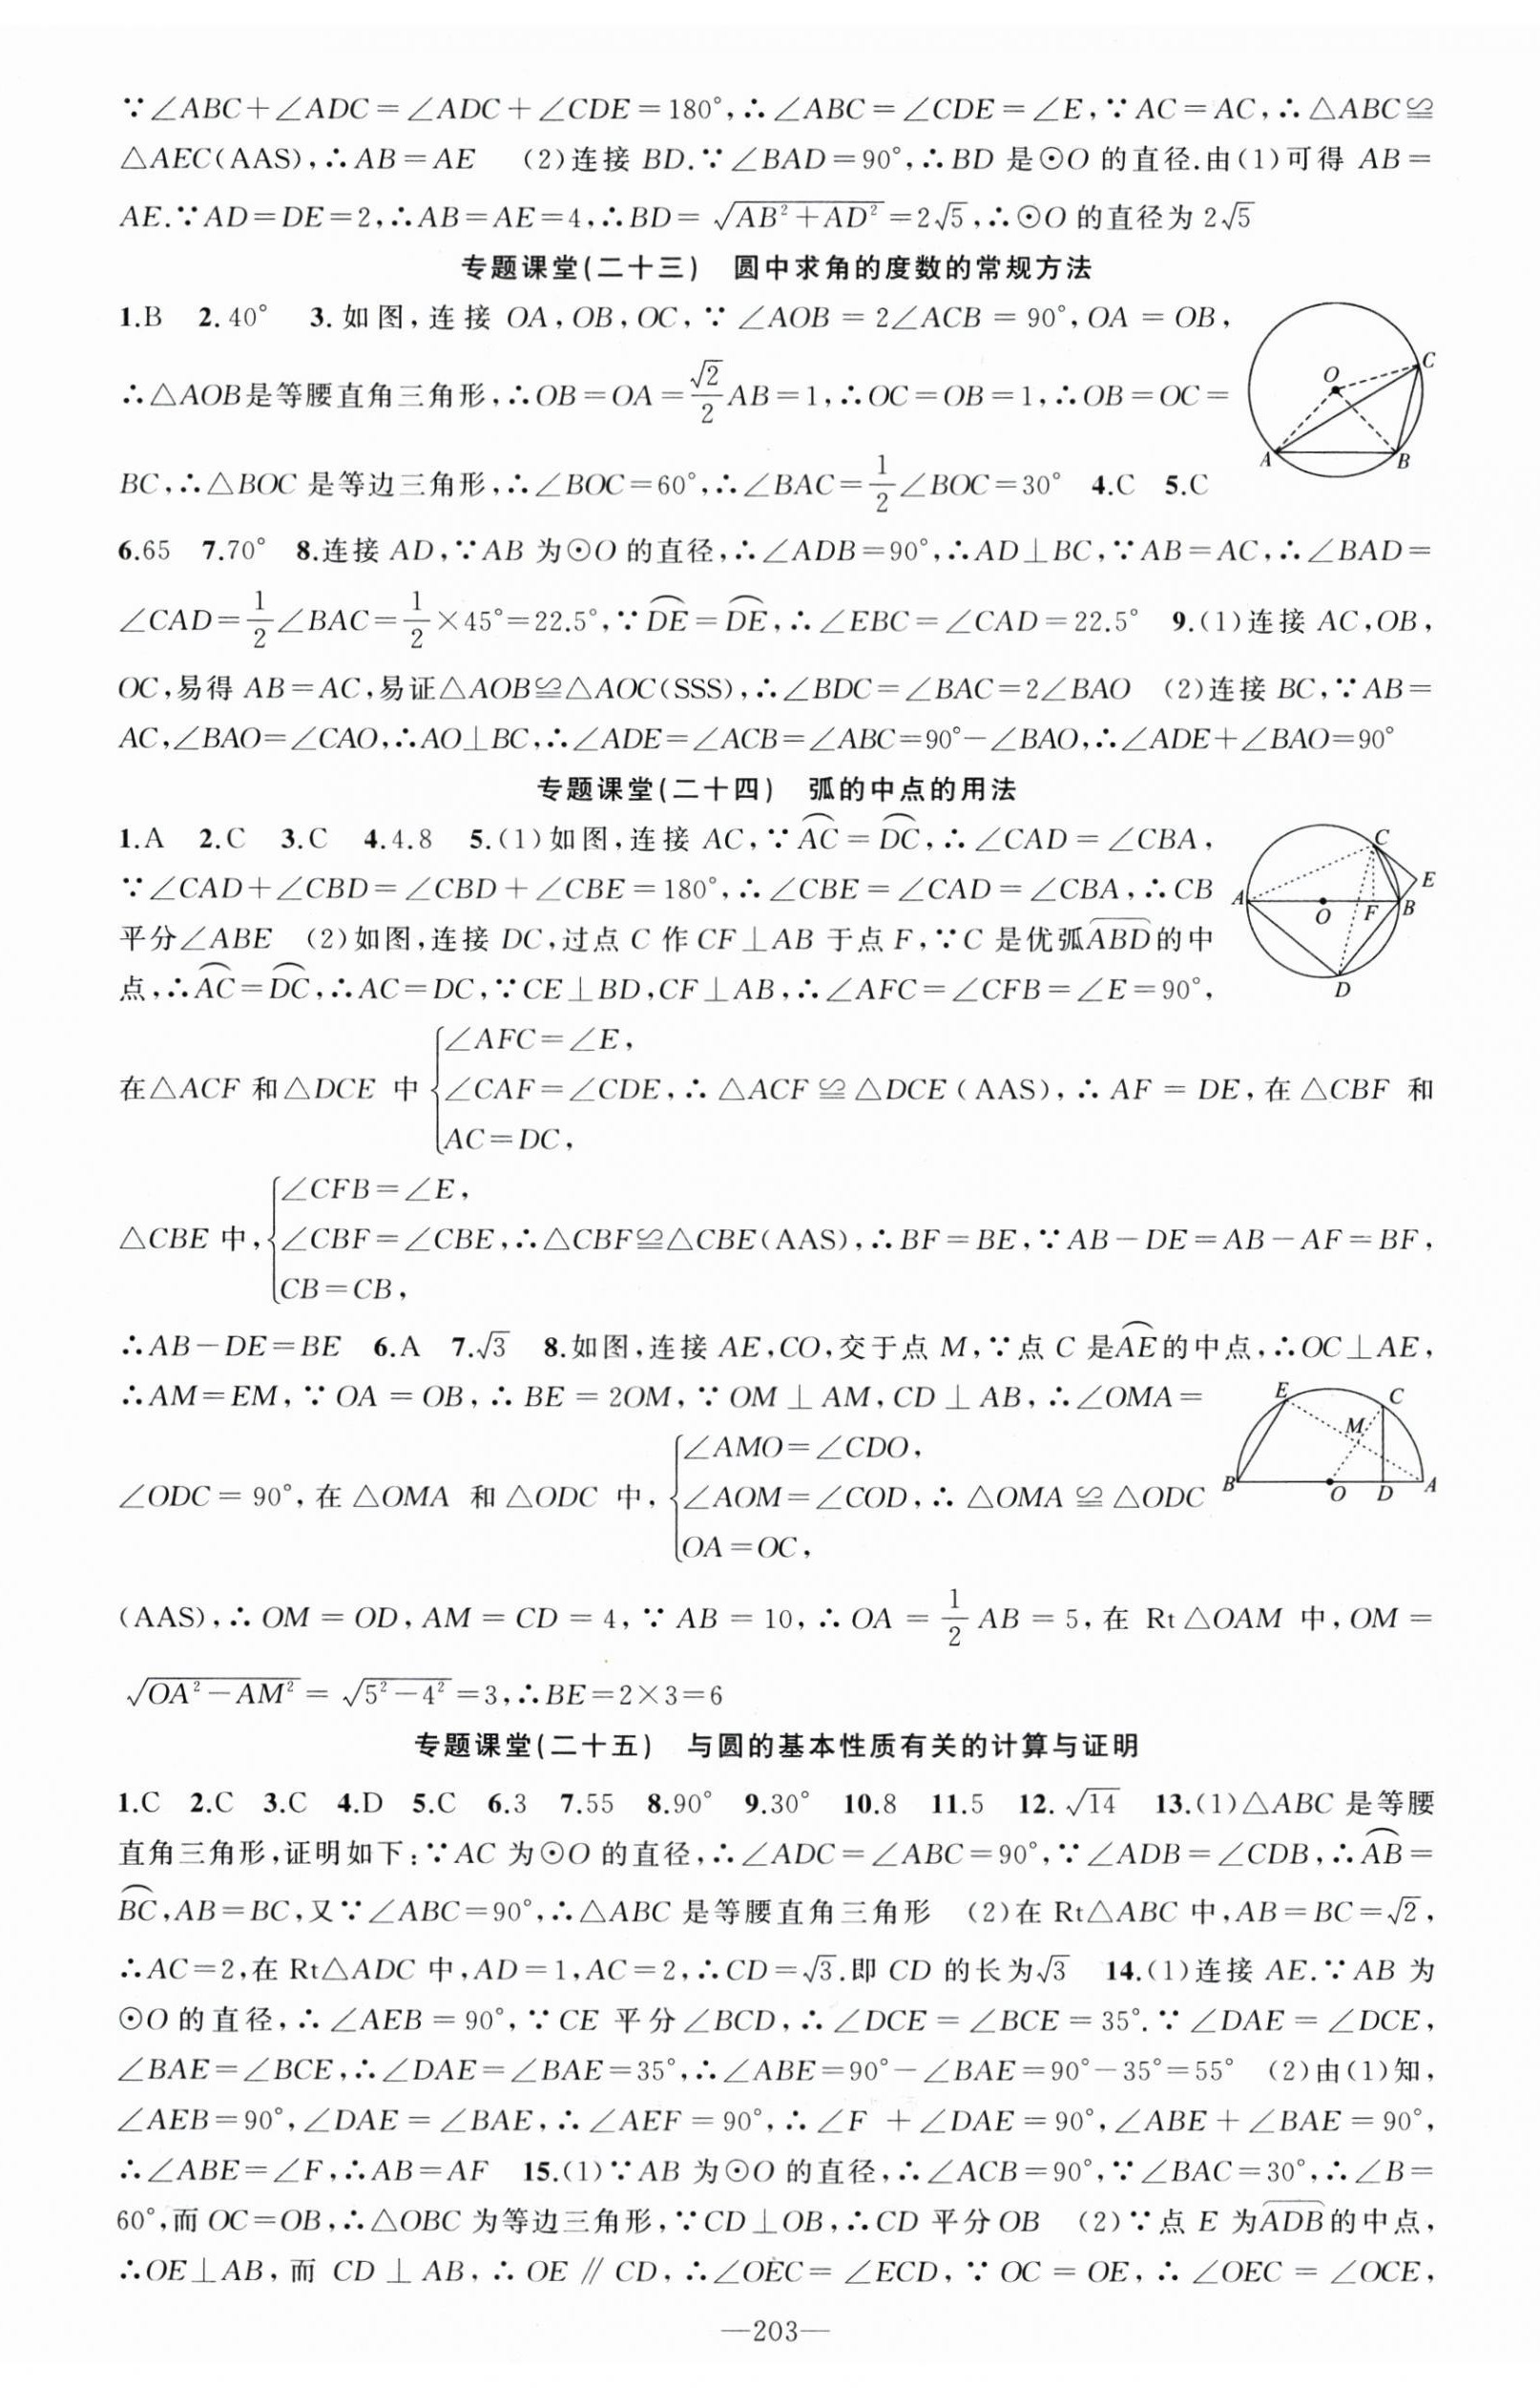 ∵∠ABC+∠ADC=∠ADC+∠CDE=180°,∴∠ABC=∠CDE=∠E,∵AC=AC,∴△ABC≌
△AEC(AAS),∴AB=AE (2)连接 BD.∵∠BAD=90°,∴BD 是⊙O 的直径.由(1)可得 AB=
AE.∵AD=DE=2,∴AB=AE=4,∴BD=√(AB²+AD²)=2√5,∴⊙O 的直径为 2√5
专题课堂(二十三) 圆中求角的度数的常规方法
1.B 2.40° 3.如图,连接 OA,OB,OC,∵∠AOB=2∠ACB=90°,OA=OB,
∴△AOB是等腰直角三角形,∴OB=OA=√2/2 AB=1,∴OC=OB=1,∴OB=OC=
BC,∴△BOC 是等边三角形,∴∠BOC=60°,∴∠BAC=1/2∠BOC=30° 4.C 5.C
O C A B
6.65 7.70° 8.连接 AD,∵AB 为⊙O 的直径,∴∠ADB=90°,∴AD⊥BC,∵AB=AC,∴∠BAD=
∠CAD=1/2∠BAC=1/2×45°=22.5°,∵⌒DE=⌒DE,∴∠EBC=∠CAD=22.5° 9.(1)连接 AC,OB,
OC,易得 AB=AC,易证△AOB≌△AOC(SSS),∴∠BDC=∠BAC=2∠BAO (2)连接 BC,∵AB=
AC,∠BAO=∠CAO,∴AO⊥BC,∴∠ADE=∠ACB=∠ABC=90°-∠BAO,∴∠ADE+∠BAO=90°
专题课堂(二十四) 弧的中点的用法
1.A 2.C 3.C 4.4.8 5.(1)如图,连接 AC,∵⌒AC=⌒DC,∴∠CAD=∠CBA,
∵∠CAD+∠CBD=∠CBD+∠CBE=180°,∴∠CBE=∠CAD=∠CBA,∴CB
平分∠ABE (2)如图,连接 DC,过点 C 作 CF⊥AB 于点 F,∵C 是优弧⌒ABD的中
点,∴⌒AC=⌒DC,∴AC=DC,∵CE⊥BD,CF⊥AB,∴∠AFC=∠CFB=∠E=90°,
C E A O F B D
∠AFC=∠E,
在△ACF 和△DCE 中{∠CAF=∠CDE,∴△ACF≌△DCE(AAS),∴AF=DE,在△CBF 和
AC=DC,
∠CFB=∠E,
△CBE 中,{∠CBF=∠CBE,∴△CBF≌△CBE(AAS),∴BF=BE,∵AB-DE=AB-AF=BF,
CB=CB,
∴AB-DE=BE 6.A 7.√3 8.如图,连接 AE,CO,交于点 M,∵点 C 是⌒AE的中点,∴OC⊥AE,
∴AM=EM,∵OA=OB,∴BE=2OM,∵OM⊥AM,CD⊥AB,∴∠OMA=
∠AMO=∠CDO,
∠ODC=90°,在△OMA 和△ODC 中,{∠AOM=∠COD,∴△OMA≌△ODC
OA=OC,
E C M B O D A
(AAS),∴OM=OD,AM=CD=4,∵AB=10,∴OA=1/2 AB=5,在 Rt△OAM 中,OM=
√(OA²-AM²)=√(5²-4²)=3,∴BE=2×3=6
专题课堂(二十五) 与圆的基本性质有关的计算与证明
1.C 2.C 3.C 4.D 5.C 6.3 7.55 8.90° 9.30° 10.8 11.5 12.√14 13.(1)△ABC 是等腰
直角三角形,证明如下:∵AC 为⊙O 的直径,∴∠ADC=∠ABC=90°,∵∠ADB=∠CDB,∴⌒AB=
⌒BC,AB=BC,又∵∠ABC=90°,∴△ABC 是等腰直角三角形 (2)在 Rt△ABC 中,AB=BC=√2,
∴AC=2,在 Rt△ADC 中,AD=1,AC=2,∴CD=√3.即 CD 的长为√3 14.(1)连接 AE.∵AB 为
⊙O 的直径,∴∠AEB=90°,∵CE 平分∠BCD,∴∠DCE=∠BCE=35°.∵∠DAE=∠DCE,
∠BAE=∠BCE,∴∠DAE=∠BAE=35°,∴∠ABE=90°-∠BAE=90°-35°=55° (2)由(1)知,
∠AEB=90°,∠DAE=∠BAE,∴∠AEF=90°,∴∠F+∠DAE=90°,∠ABE+∠BAE=90°,
∴∠ABE=∠F,∴AB=AF 15.(1)∵AB 为⊙O 的直径,∴∠ACB=90°,∵∠BAC=30°,∴∠B=
60°,而 OC=OB,∴△OBC 为等边三角形,∵CD⊥OB,∴CD 平分 OB (2)∵点 E 为⌒ADB的中点,
∴OE⊥AB,而 CD⊥AB,∴OE∥CD,∴∠OEC=∠ECD,∵OC=OE,∴∠OEC=∠OCE,
—203—